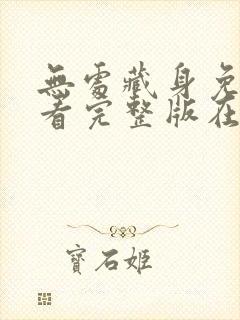 無處藏身免
看完整版在
寶石姬